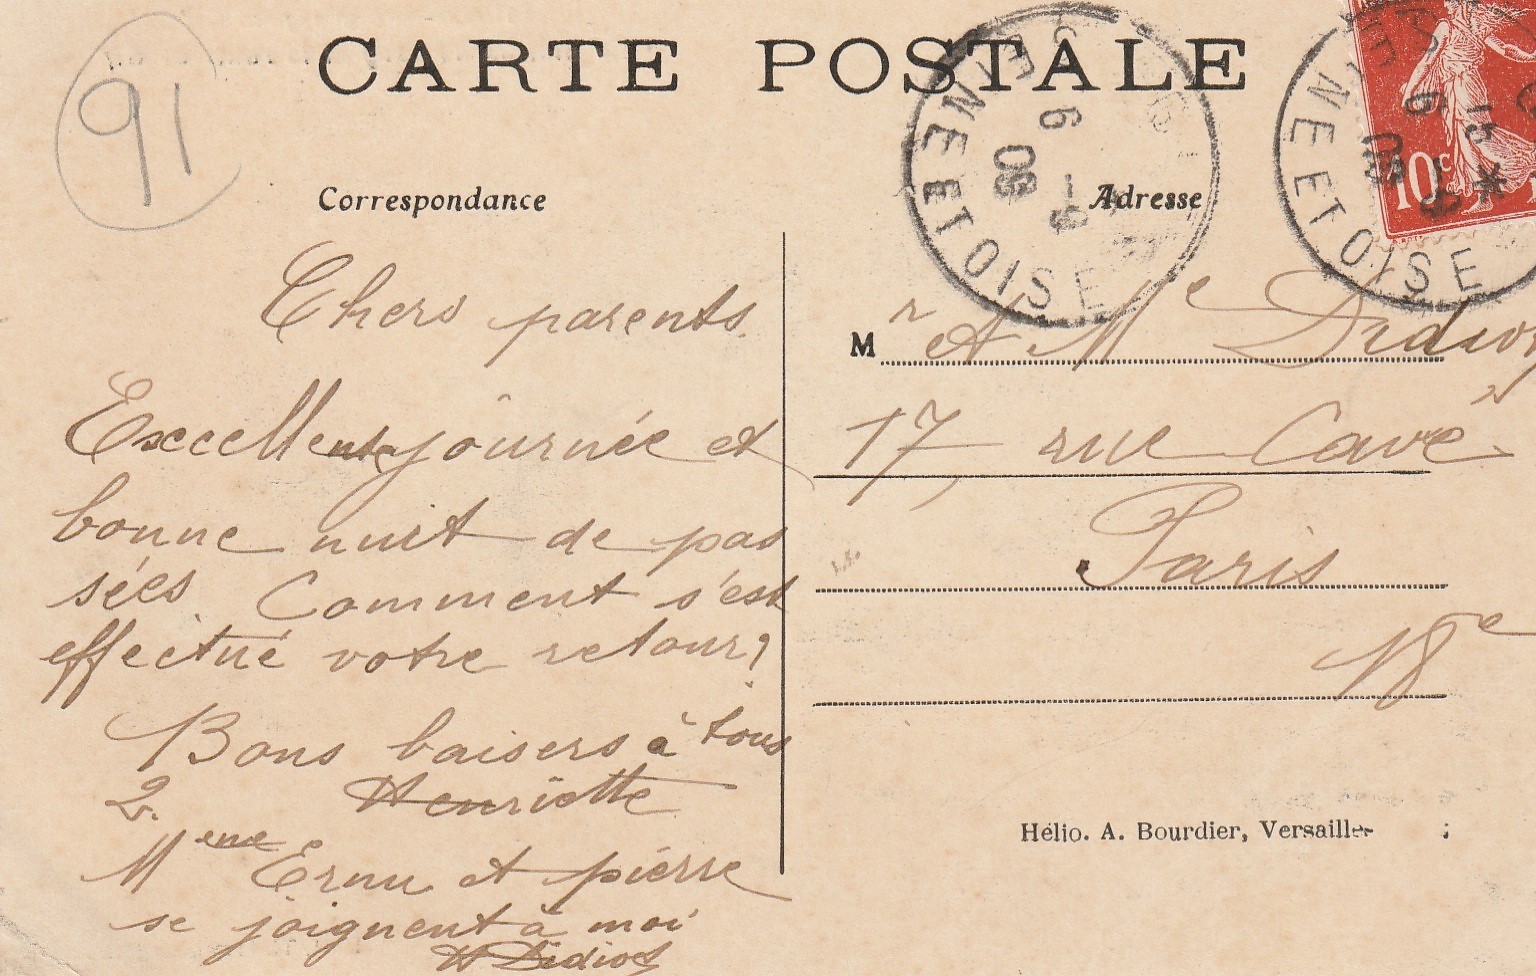 91
CARTE POSTALE
SEINE ET OISE
6 -5
09
SEINE ET OISE
6 -5
09
10c
Correspondance
Adresse
Chers parents
Excellente journée et
bonne nuit de pas
sées. Comment s'est
effectué votre retour?
Bons baisers à tous
2. Henriette
Mme Ernu et pierre
se joignent à moi
H Didiot
M r et Me Didiot
17, rue Cavé
Paris
18e
Hélio. A. Bourdier, Versailles